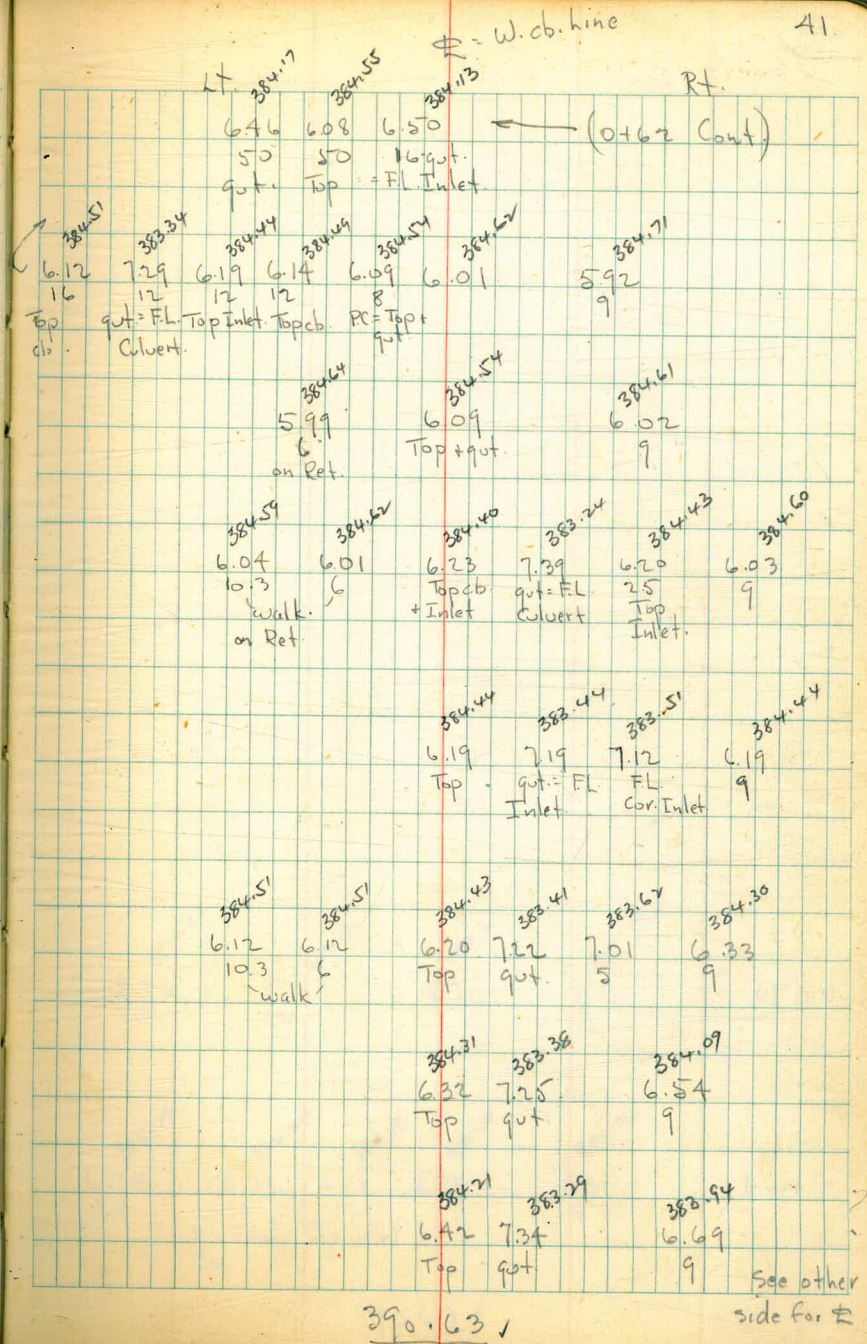 ℄ = W. cb. Line 41
Lt. Rt.
384.17 384.55 384.13
6.46 6.08 6.50 ← (0+62 Cont)
50 50 16 gut.
gut. Top = F.L. Inlet
384.51 383.34 384.44 384.49 384.54 384.62 384.71
6.12 7.29 6.19 6.14 6.09 6.01 5.92
16 12 12 12 8 9
Top gut. = F.L. Top Inlet. Top cb. P.C = Top +
cb. Culvert. gut
384.64 384.54 384.61
5.99 6.09 6.02
6 Top + gut. 9
on Ret.
384.59 384.62 384.40 383.24 384.43 384.60
6.04 6.01 6.23 7.39 6.20 6.03
10.3 6 Top cb. gut = F.L 2.5 9
walk. + Inlet Culvert Top
on Ret. Inlet.
384.44 383.44 383.51 384.44
6.19 7.19 7.12 6.19
Top gut. = F.L F.L. 9
Inlet. Cor. Inlet
384.51 384.51 384.43 383.41 383.62 384.30
6.12 6.12 6.20 7.22 7.01 6.33
10.3 6 Top gut. 5 9
walk
384.31 383.38 384.09
6.32 7.25 6.54
Top gut 9
384.21 383.29 383.94
6.42 7.34 6.69
Top gut 9
See other
side for ℄
390.63 ✓